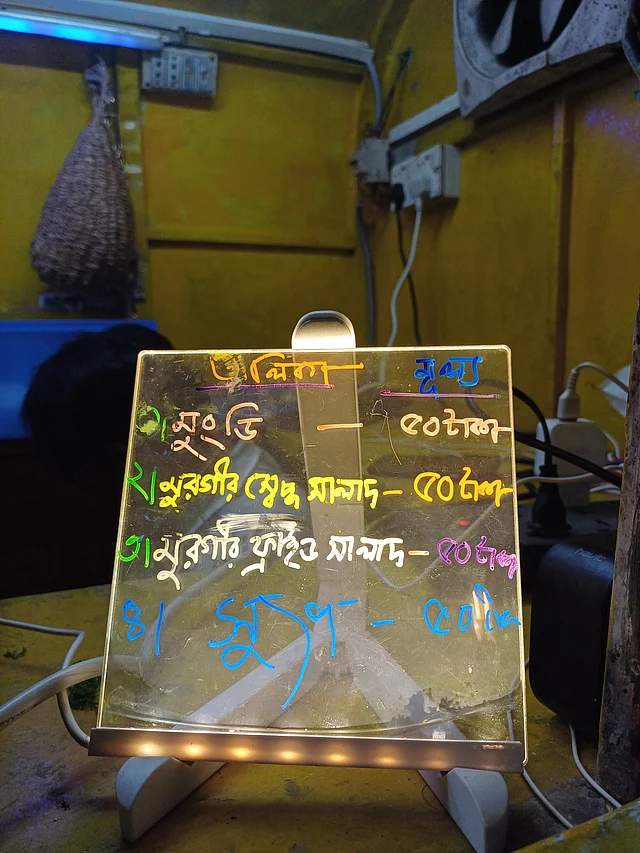 তালিকা মূল্য
১। মুংডি — ৫০ টাকা
২। মুরগীর স্বেদ্ধ সালাদ – ৫০ টাকা
৩। মুরগীর ফ্রাইও সালাদ – ৫০ টাকা
৪। স্যুপ – ৫০ টাকা